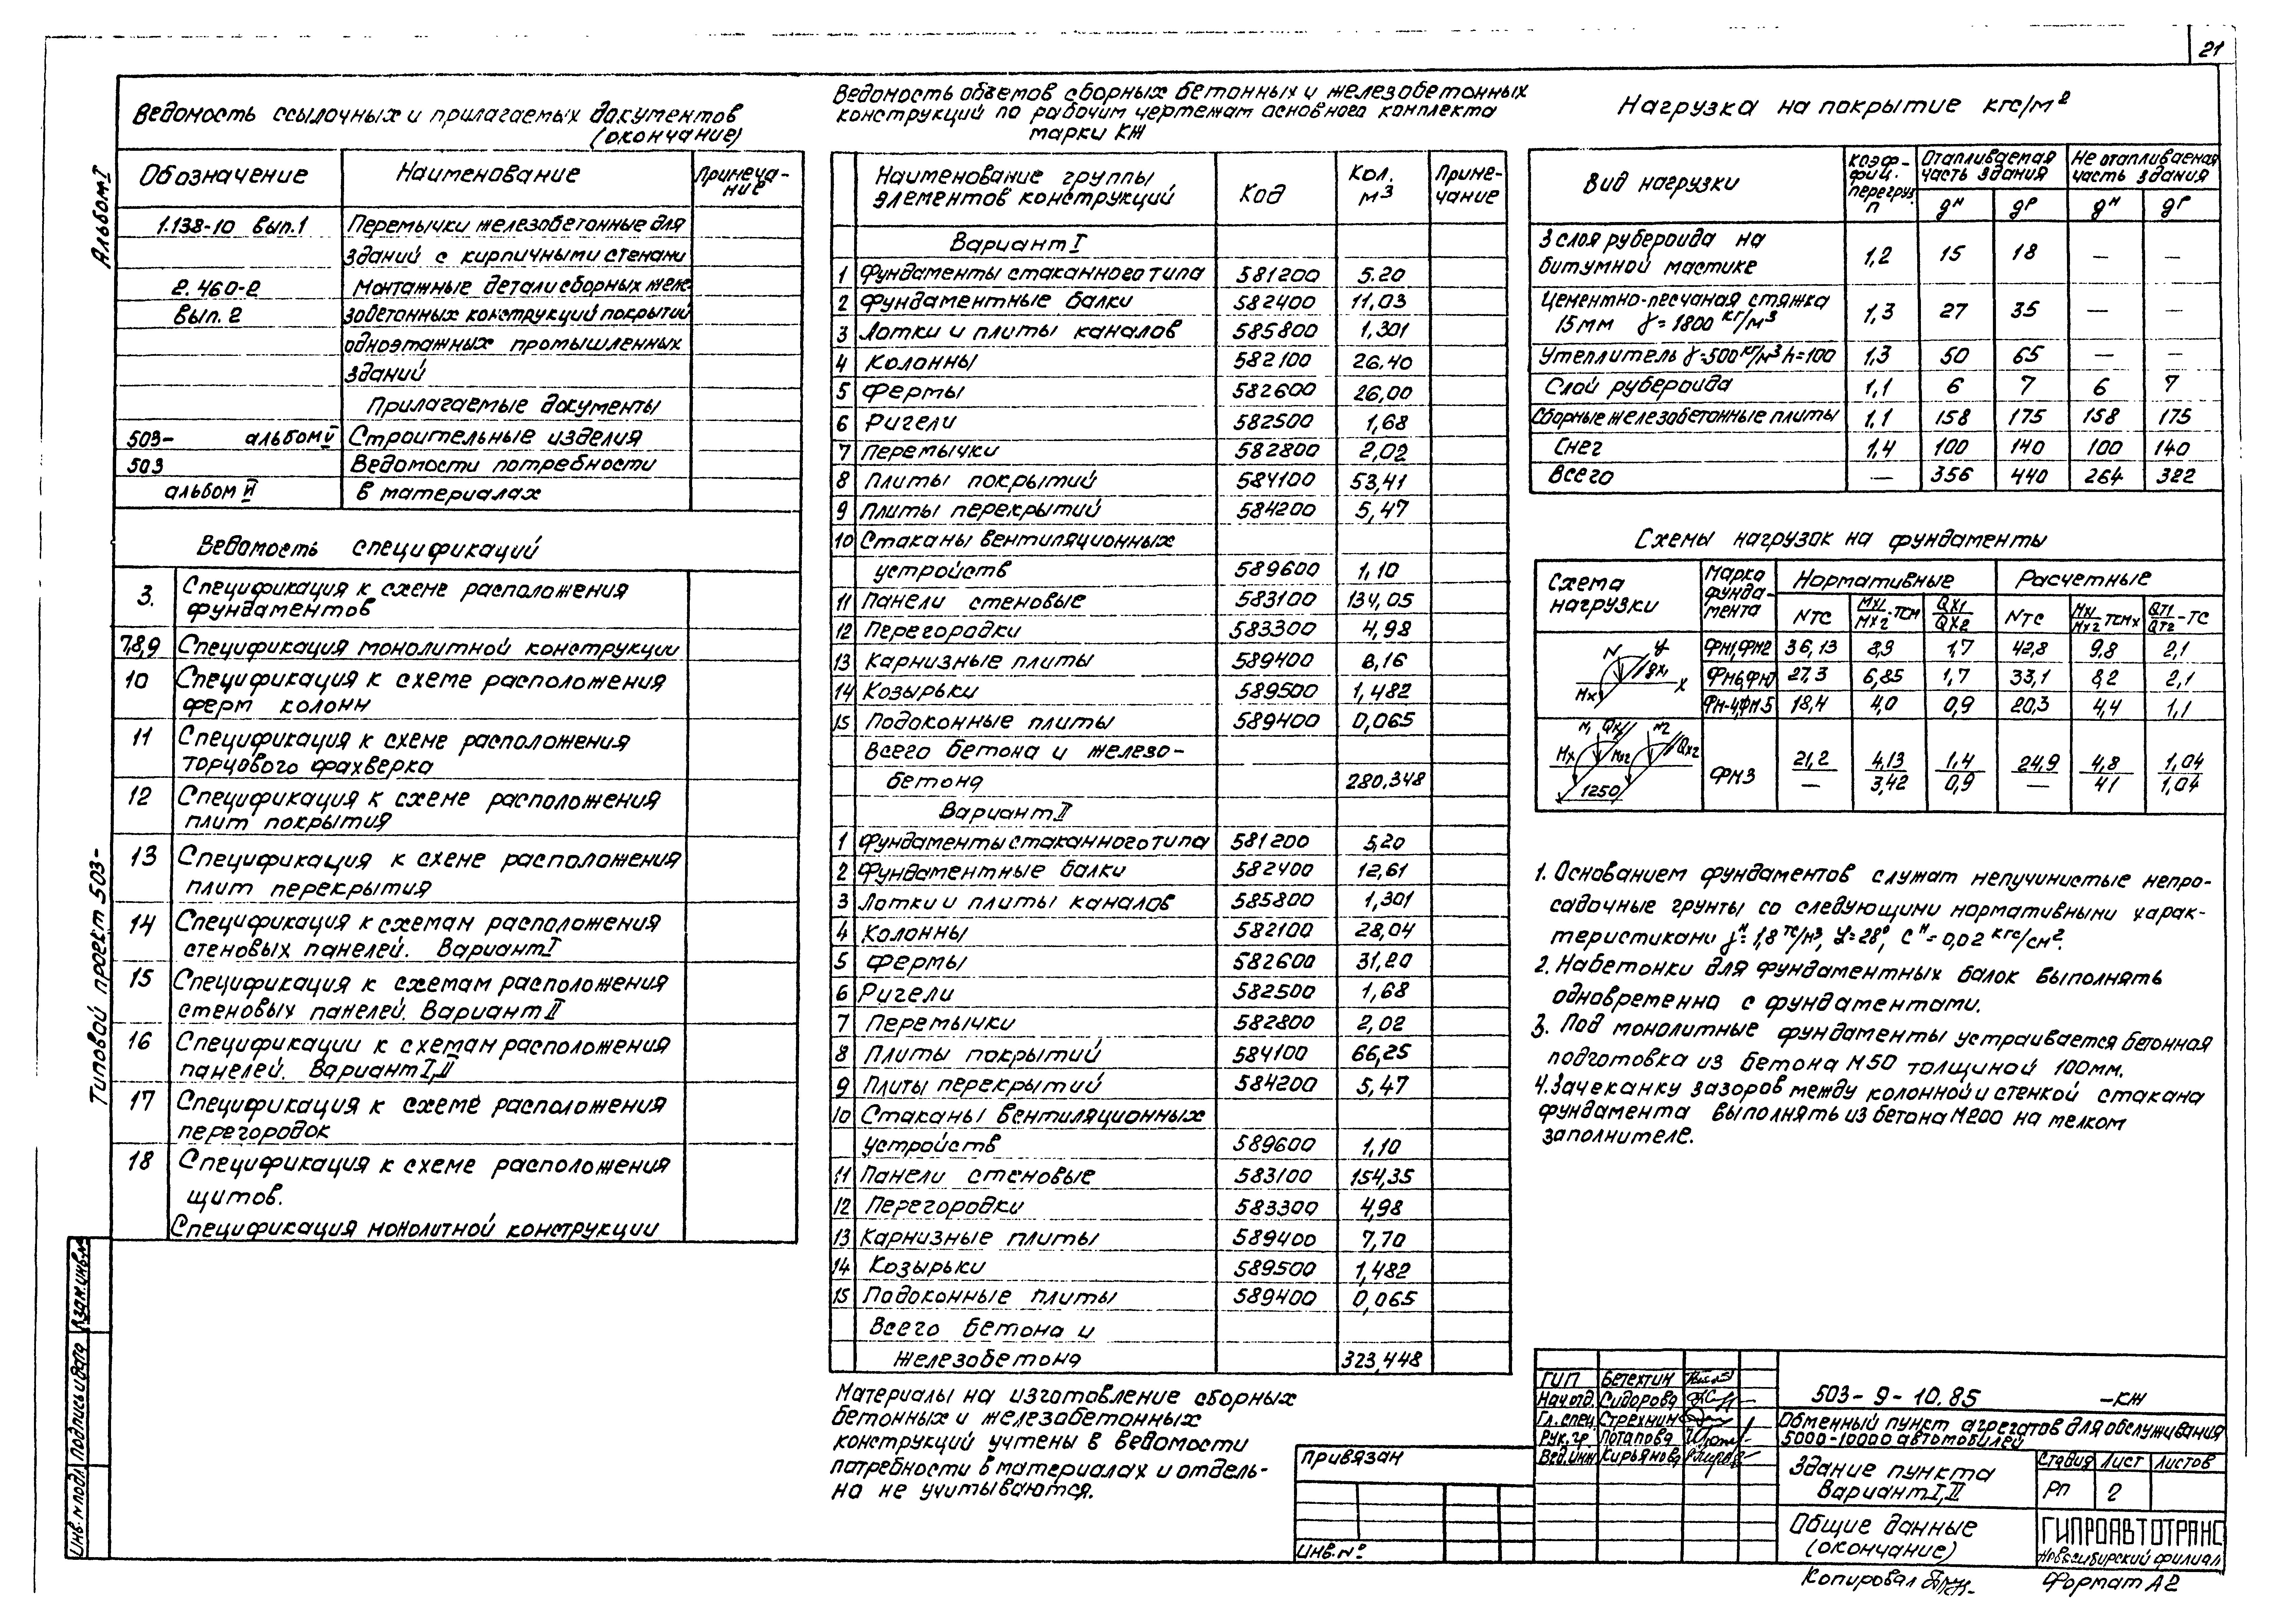 21
Альбом I
Типовой проект 503-
Ведомость ссылочных и прилагаемых документов
(окончание)
Обозначение Наименование Примеча-
ние
1.138-10 вып.1 Перемычки железобетонные для
зданий с кирпичными стенами
2.460-2 Монтажные детали сборных желе-
вып. 2 зобетонных конструкций покрытий
одноэтажных промышленных
зданий
Прилагаемые документы
503- альбом V Строительные изделия
503 Ведомости потребности
альбом VI в материалах
Ведомость спецификаций
3. Спецификация к схеме расположения
фундаментов
7,8,9 Спецификация монолитной конструкции
10 Спецификация к схеме расположения
ферм колонн
11 Спецификация к схеме расположения
торцового фахверка
12 Спецификация к схеме расположения
плит покрытия
13 Спецификация к схеме расположения
плит перекрытия
14 Спецификация к схемам расположения
стеновых панелей. Вариант I
15 Спецификация к схемам расположения
стеновых панелей. Вариант II
16 Спецификации к схемам расположения
панелей. Вариант I,II
17 Спецификация к схеме расположения
перегородок
18 Спецификация к схеме расположения
щитов.
Спецификация монолитной конструкции
Ведомость объемов сборных бетонных и железобетонных
конструкций по рабочим чертежам основного комплекта
марки КЖ
Наименование группы
элементов конструкций Код Кол.
м3 Приме-
чание
Вариант I
1 Фундаменты стаканного типа 581200 5.20
2 Фундаментные балки 582400 11,03
3 Лотки и плиты каналов 585800 1,301
4 Колонны 582100 26.40
5 Фермы 582600 26,00
6 Ригели 582500 1,68
7 Перемычки 582800 2,02
8 Плиты покрытий 584100 53,41
9 Плиты перекрытий 584200 5,47
10 Стаканы вентиляционных
устройств 589600 1,10
11 Панели стеновые 583100 134,05
12 Перегородки 583300 4,98
13 Карнизные плиты 589400 8,16
14 Козырьки 589500 1,482
15 Подоконные плиты 589400 0,065
Всего бетона и железо-
бетона 280,348
Вариант II
1 Фундаменты стаканного типа 581200 5,20
2 Фундаментные балки 582400 12,61
3 Лотки и плиты каналов 585800 1,301
4 Колонны 582100 28,04
5 Фермы 582600 31,20
6 Ригели 582500 1,68
7 Перемычки 582800 2,02
8 Плиты покрытий 584100 66,25
9 Плиты перекрытий 584200 5,47
10 Стаканы вентиляционных
устройств 589600 1,10
11 Панели стеновые 583100 154,35
12 Перегородки 583300 4,98
13 Карнизные плиты 589400 7,70
14 Козырьки 589500 1,482
15 Подоконные плиты 589400 0,065
Всего бетона и
железобетона 323,448
Материалы на изготовление сборных
бетонных и железобетонных
конструкций учтены в ведомости
потребности в материалах и отдель-
но не учитываются.
Нагрузка на покрытие кгс/м2
Вид нагрузки Коэф-
фиц.
перегруз.
n Отапливаемая
часть здания Не отапливаемая
часть здания
gн gр gн gр
3 слоя рубероида на
битумной мастике 1,2 15 18 — —
Цементно-песчаная стяжка
15мм γ=1800 кг/м3 1,3 27 35 — —
Утеплитель γ=500 кг/м3 h=100 1,3 50 65 — —
Слой рубероида 1,1 6 7 6 7
Сборные железобетонные плиты 1,1 158 175 158 175
Снег 1,4 100 140 100 140
Всего — 356 440 264 322
Схемы нагрузок на фундаменты
Схема
нагрузки Марка
фунда-
мента Нормативные Расчетные
Nтс Mx1/Mx2·тсм Qx1/Qx2 Nтс Mx1/Mx2 тсмх Qт1/Qт2-тс
N y Qx1 Mx x
Фм1,Фм2 36,13 8,9 1,7 42,8 9,8 2,1
Фм6,Фм7 27,3 6,85 1,7 33,1 8,2 2,1
Фм-4,Фм5 18,4 4,0 0,9 20,3 4,4 1,1
Mx Mx2 Qx2 1250
Фм3 21,2/— 4,13/3,42 1,4/0,9 24,9/— 4,8/41 1,04/1,04
1. Основанием фундаментов служат непучинистые непро-
садочные грунты со следующими нормативными харак-
теристиками γн=1,8 тс/м3, φ=28°, Cн=0,02 кгс/см2.
2. Набетонки для фундаментных балок выполнять
одновременно с фундаментами.
3. Под монолитные фундаменты устраивается бетонная
подготовка из бетона М50 толщиной 100мм.
4. Зачеканку зазоров между колонной и стенкой стакана
фундамента выполнять из бетона М200 на мелком
заполнителе.
Привязан
Инв.№
ГИП Бетехтин
Нач.отд. Сидорова
Гл.спец Стрехнин
Рук.гр. Потапова
Вед.инж Кирьянова
503-9-10.85 -КЖ
Обменный пункт агрегатов для обслуживания
5000-10000 автомобилей
Здание пункта
Вариант I,II
Стадия Лист Листов
РП 2
Общие данные
(окончание)
ГИПРОАВТОТРАНС
Новосибирский филиал
Копировал
Формат А2
Инв.№подл Подпись и дата Взам.инв.№